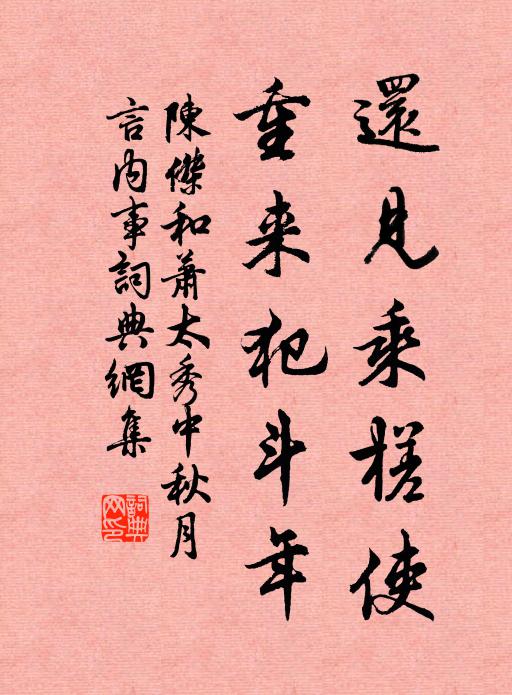 還見乘槎使
重来犯斗年
陳傑和蕭太秀中秋月
言内事詞典網集
詞典
网印